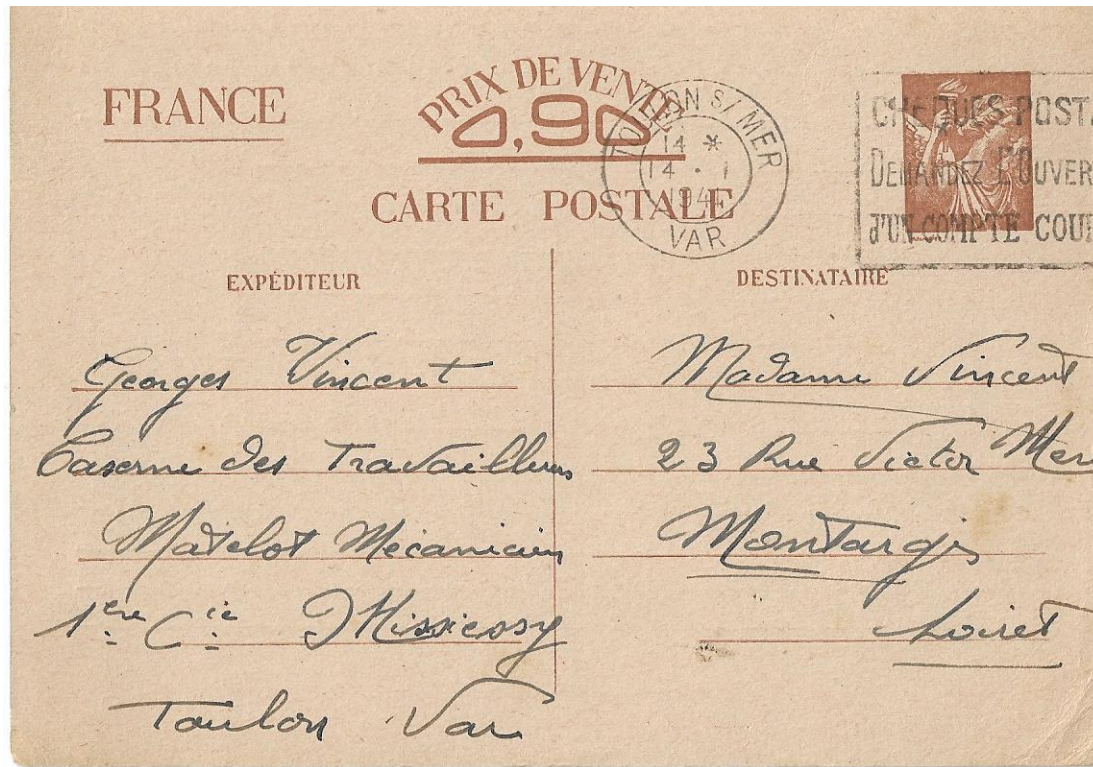 FRANCE
PRIX DE VENTE
0,90
CARTE POSTALE
TOULON S/MER
14 *
14 . 1
1941
VAR
CHEQUES POST
DEMANDEZ L'OUVER
d'UN COMPTE COU
EXPÉDITEUR
Georges Vincent
Caserne des Travailleurs
Matelot Mécanicien
1ère Cie Missiessy
Toulon Var
DESTINATAIRE
Madame Vincent
23 Rue Victor Mer
Montargis
Loiret